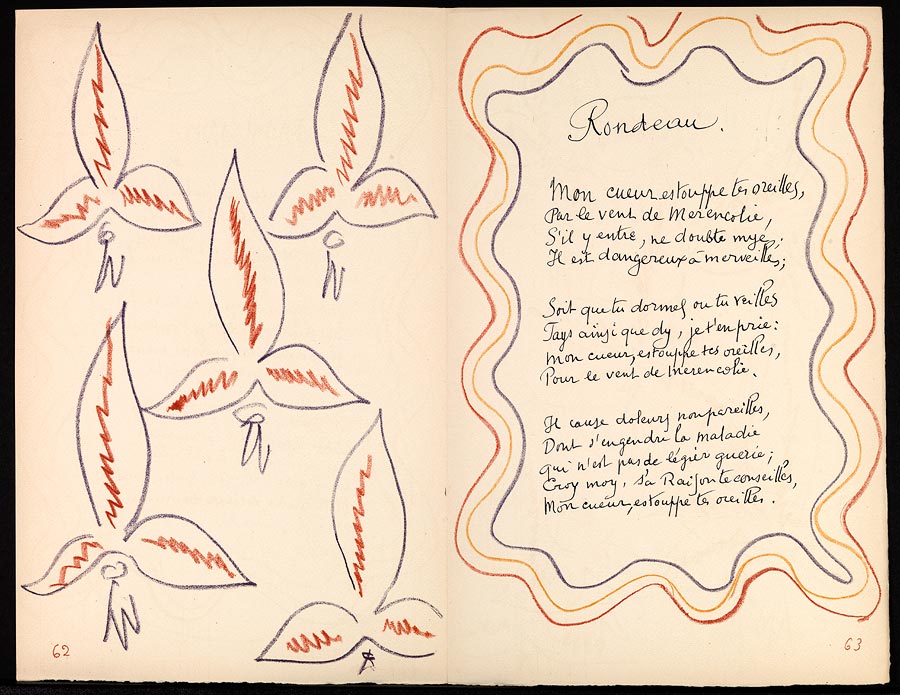 Rondeau.
Mon cueur estouppe tes oreilles,
Par le vent de Merencolie,
S'il y entre, ne doubte mye,
Il est dangereux à merveilles;
Soit que tu dormes ou tu veilles
Fays ainsi que dy, je t'en prie:
Mon cueur, estouppe tes oreilles,
Pour le vent de Merencolie.
Il cause doleurs nonpareilles,
Dont s'engendre la maladie
Qui n'est pas de légier guerie;
Croy moy, s'a Raison te conseilles,
Mon cueur, estouppe tes oreilles.
62
63